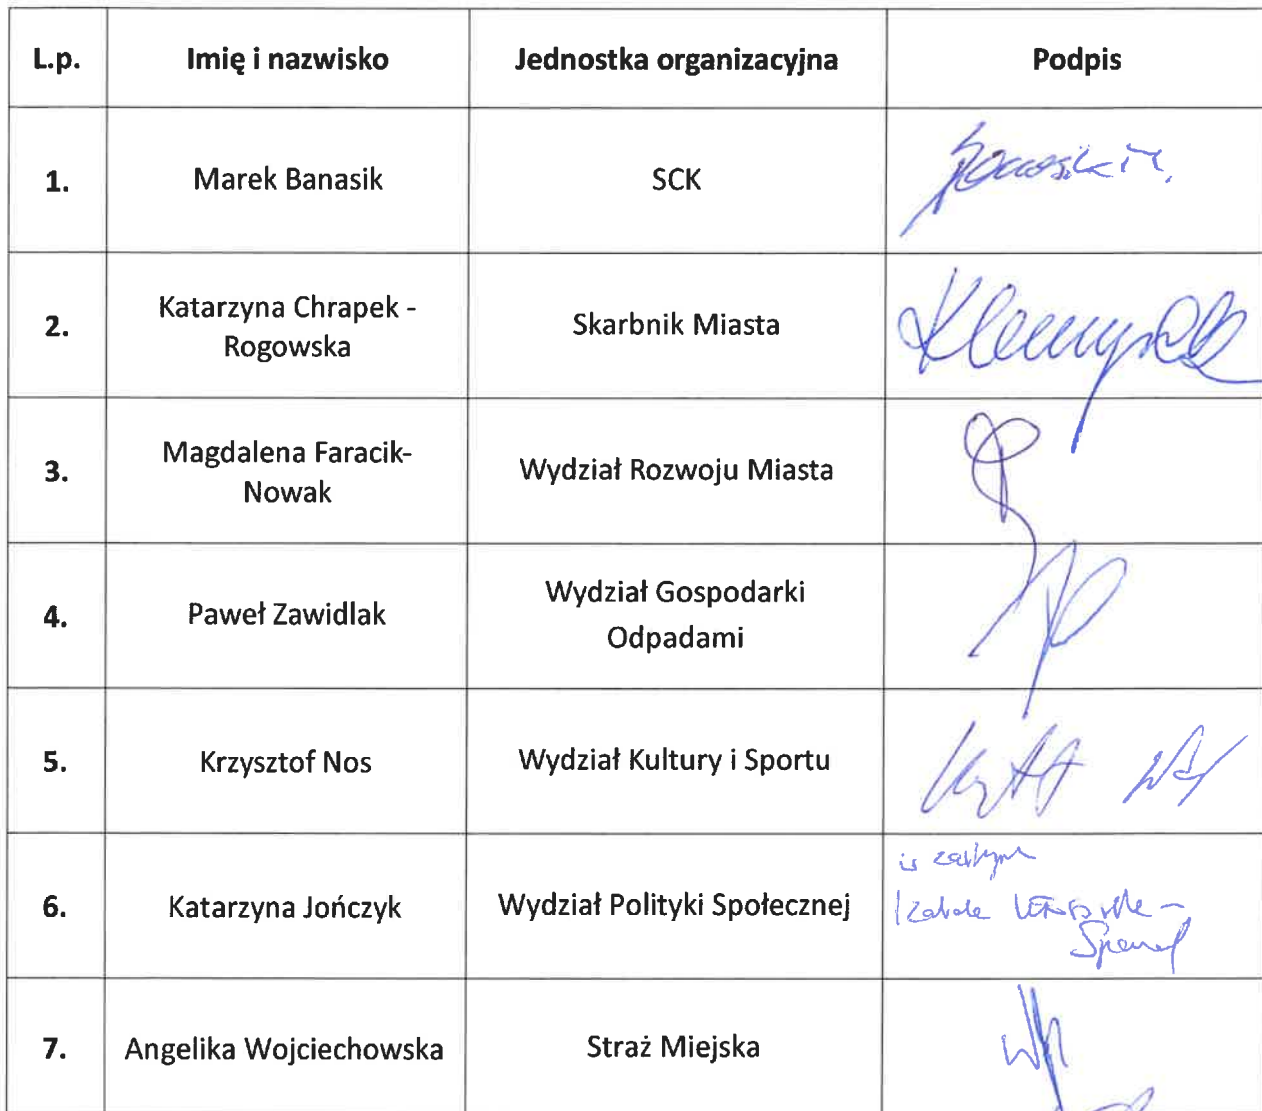 L.p. Imię i nazwisko Jednostka organizacyjna Podpis
1. Marek Banasik SCK
2. Katarzyna Chrapek - Rogowska Skarbnik Miasta
3. Magdalena Faracik-Nowak Wydział Rozwoju Miasta
4. Paweł Zawidlak Wydział Gospodarki Odpadami
5. Krzysztof Nos Wydział Kultury i Sportu
6. Katarzyna Jończyk Wydział Polityki Społecznej
7. Angelika Wojciechowska Straż Miejska